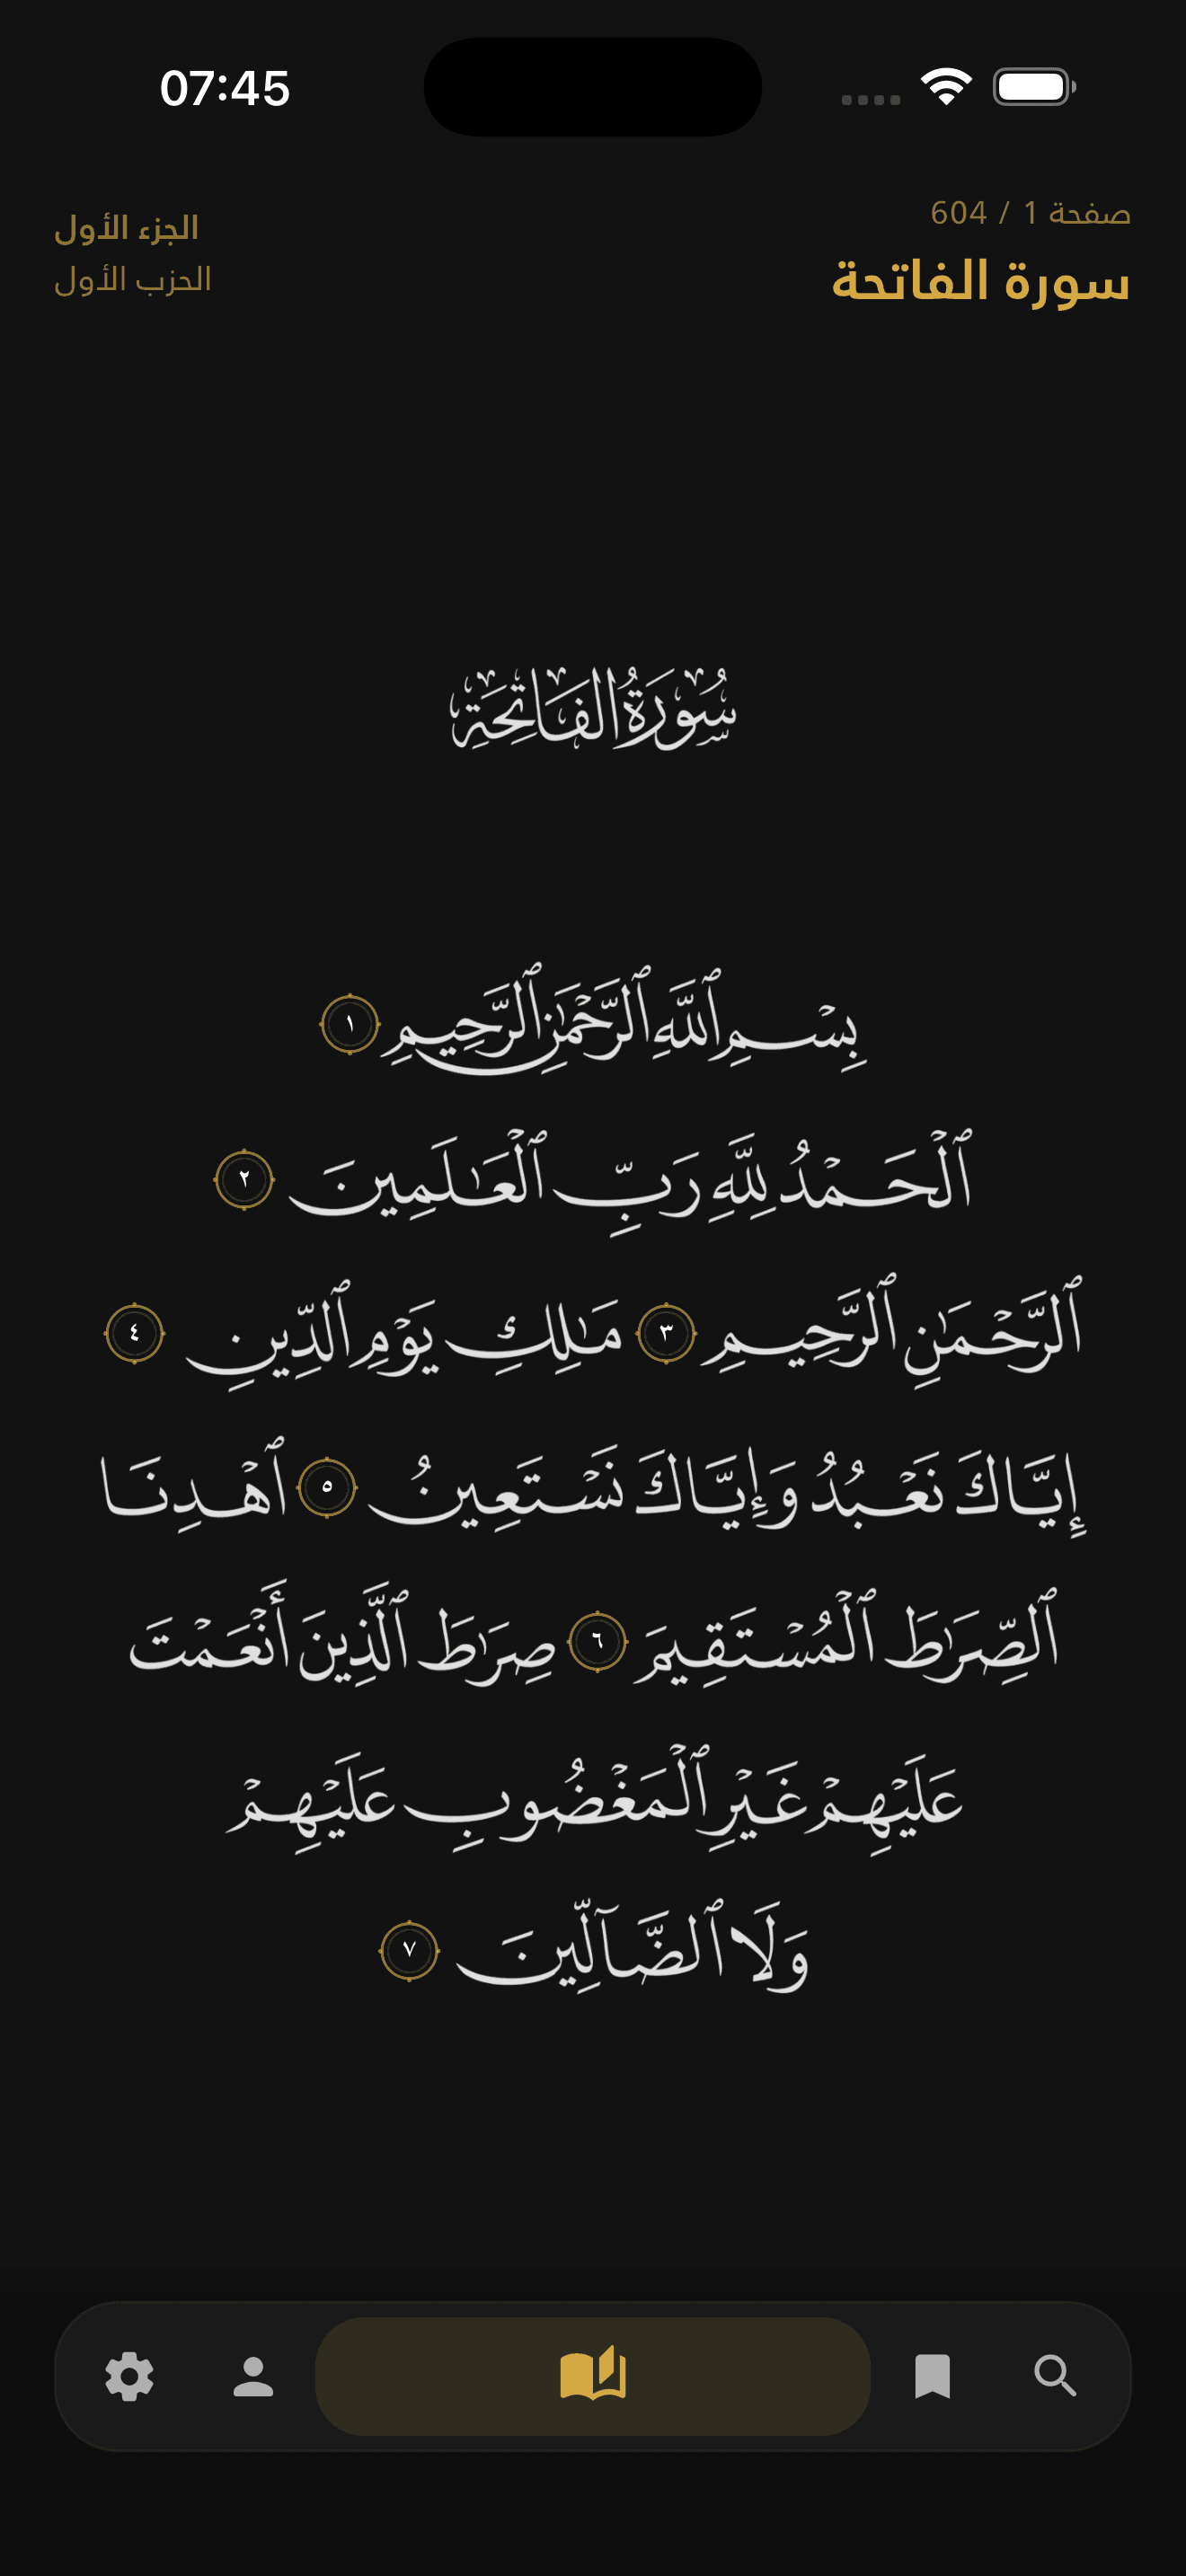 07:45
صفحة 1 / 604
سورة الفاتحة
الجزء الأول
الحزب الأول
سُورَةُ الفَاتِحَةِ
بِسْمِ ٱللَّهِ ٱلرَّحْمَٰنِ ٱلرَّحِيمِ ١
ٱلْحَمْدُ لِلَّهِ رَبِّ ٱلْعَٰلَمِينَ ٢
ٱلرَّحْمَٰنِ ٱلرَّحِيمِ ٣ مَٰلِكِ يَوْمِ ٱلدِّينِ ٤
إِيَّاكَ نَعْبُدُ وَإِيَّاكَ نَسْتَعِينُ ٥ ٱهْدِنَا
ٱلصِّرَٰطَ ٱلْمُسْتَقِيمَ ٦ صِرَٰطَ ٱلَّذِينَ أَنْعَمْتَ
عَلَيْهِمْ غَيْرِ ٱلْمَغْضُوبِ عَلَيْهِمْ
وَلَا ٱلضَّآلِّينَ ٧